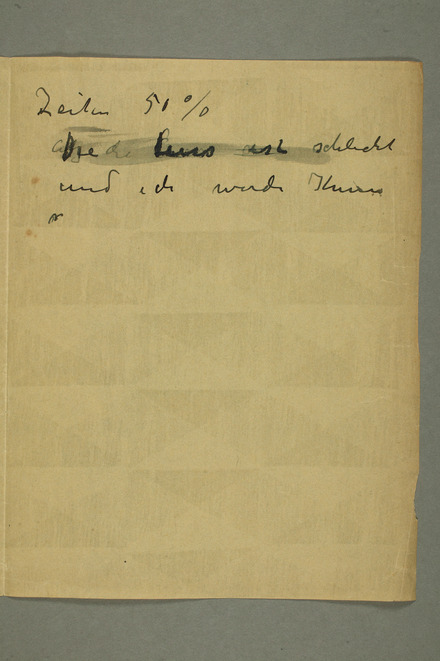 Zeiten 50 %
ist schlecht
und ich werde Ihnen